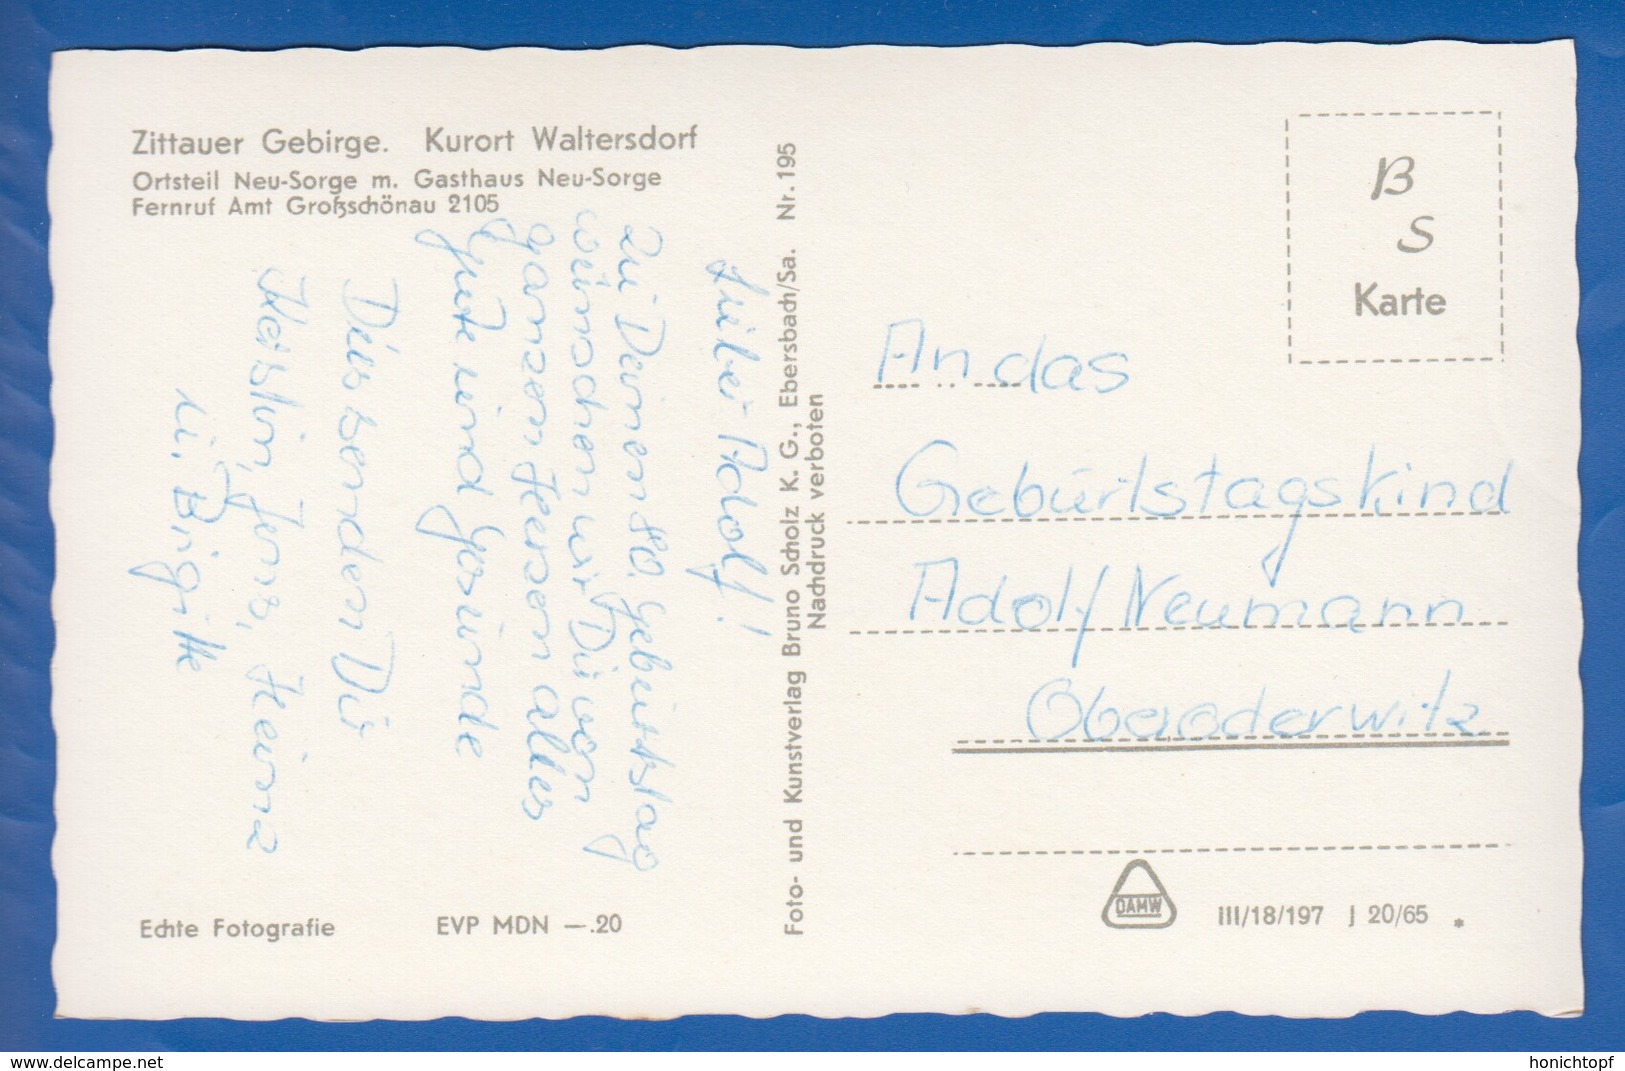 Zittauer Gebirge. Kurort Waltersdorf
Ortsteil Neu-Sorge m. Gasthaus Neu-Sorge
Fernruf Amt Großschönau 2105
Lieber Adolf!
Zu Deinem 80. Geburtstag
wünschen wir Dir von
ganzem Herzen alles
Gute und Gesunde
Dies senden Dir
Kerstin, Jens, Heinz
u. Brigitte
Echte Fotografie
EVP MDN —.20
Foto- und Kunstverlag Bruno Scholz K. G., Ebersbach/Sa. Nr. 195
Nachdruck verboten
BS
Karte
An das
Geburtstagskind
Adolf Neumann
Oberoderwitz
DAMW
III/18/197 J 20/65 *
www.delcampe.net
honichtopf